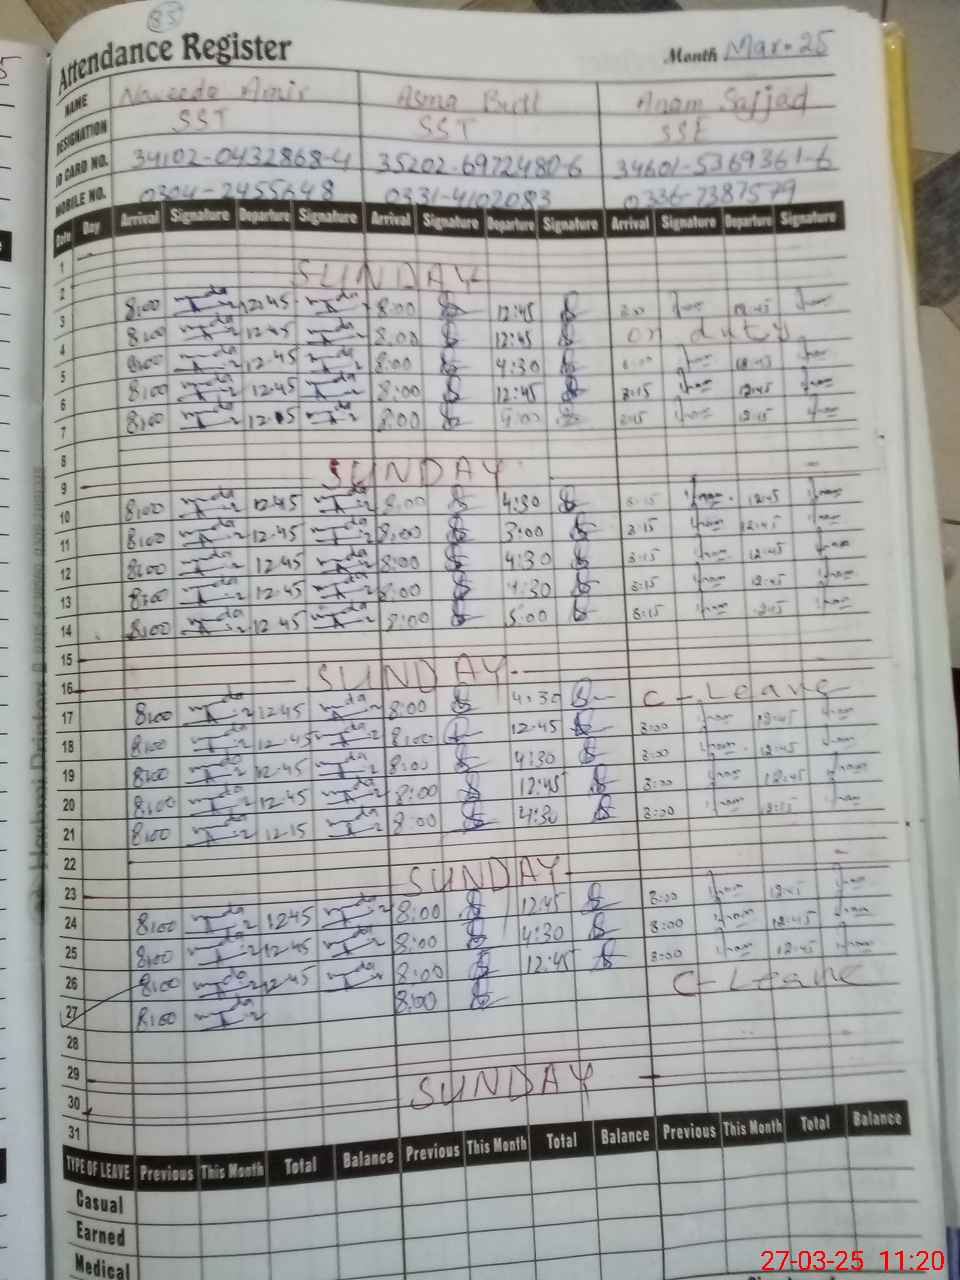 85
Attendance Register Month Mar-25
NAME Naveeda Amir Asma Butt Anam Sajjad
DESIGNATION SST SST SSE
ID CARD NO. 34102-0432868-4 35202-6972480-6 34601-5369361-6
MOBILE NO. 0304-2455648 0331-4102083 0336-7387579
Date Day Arrival Signature Departure Signature Arrival Signature Departure Signature Arrival Signature Departure Signature
1
2 SUNDAY
3 8:00 12:45 8:00 12:45 8:00 12:45
4 8:00 12:45 8:00 12:45 on duty
5 8:00 12:45 8:00 4:30 12:45
6 8:00 12:45 8:00 12:45 8:15 12:45
7 8:00 8:00 8:15 12:15
8
9 SUNDAY
10 8:00 12:45 8:00 4:30 8:15 12:45
11 8:00 12:45 8:00 3:00 8:15 12:45
12 8:00 12:45 8:00 4:30 8:15 12:45
13 8:00 12:45 8:00 4:30 8:15 12:45
14 8:00 12:45 8:00 5:00 8:15 12:45
15
16 SUNDAY
17 8:00 12:45 8:00 4:30 C-Leave
18 8:00 12:45 8:00 12:45 8:00 12:45
19 8:00 12:45 8:00 4:30 8:00 12:45
20 8:00 12:45 8:00 12:45 8:00 12:45
21 8:00 12:15 8:00 4:30 8:00
22
23 SUNDAY
24 8:00 12:45 8:00 12:45 8:00 12:45
25 8:00 12:45 8:00 4:30 8:00 12:45
26 8:00 12:45 8:00 12:45 8:00 12:45
27 8:00 8:00 C-Leave
28
29
30 SUNDAY
31
TYPE OF LEAVE Previous This Month Total Balance Previous This Month Total Balance Previous This Month Total Balance
Casual
Earned
Medical
27-03-25 11:20